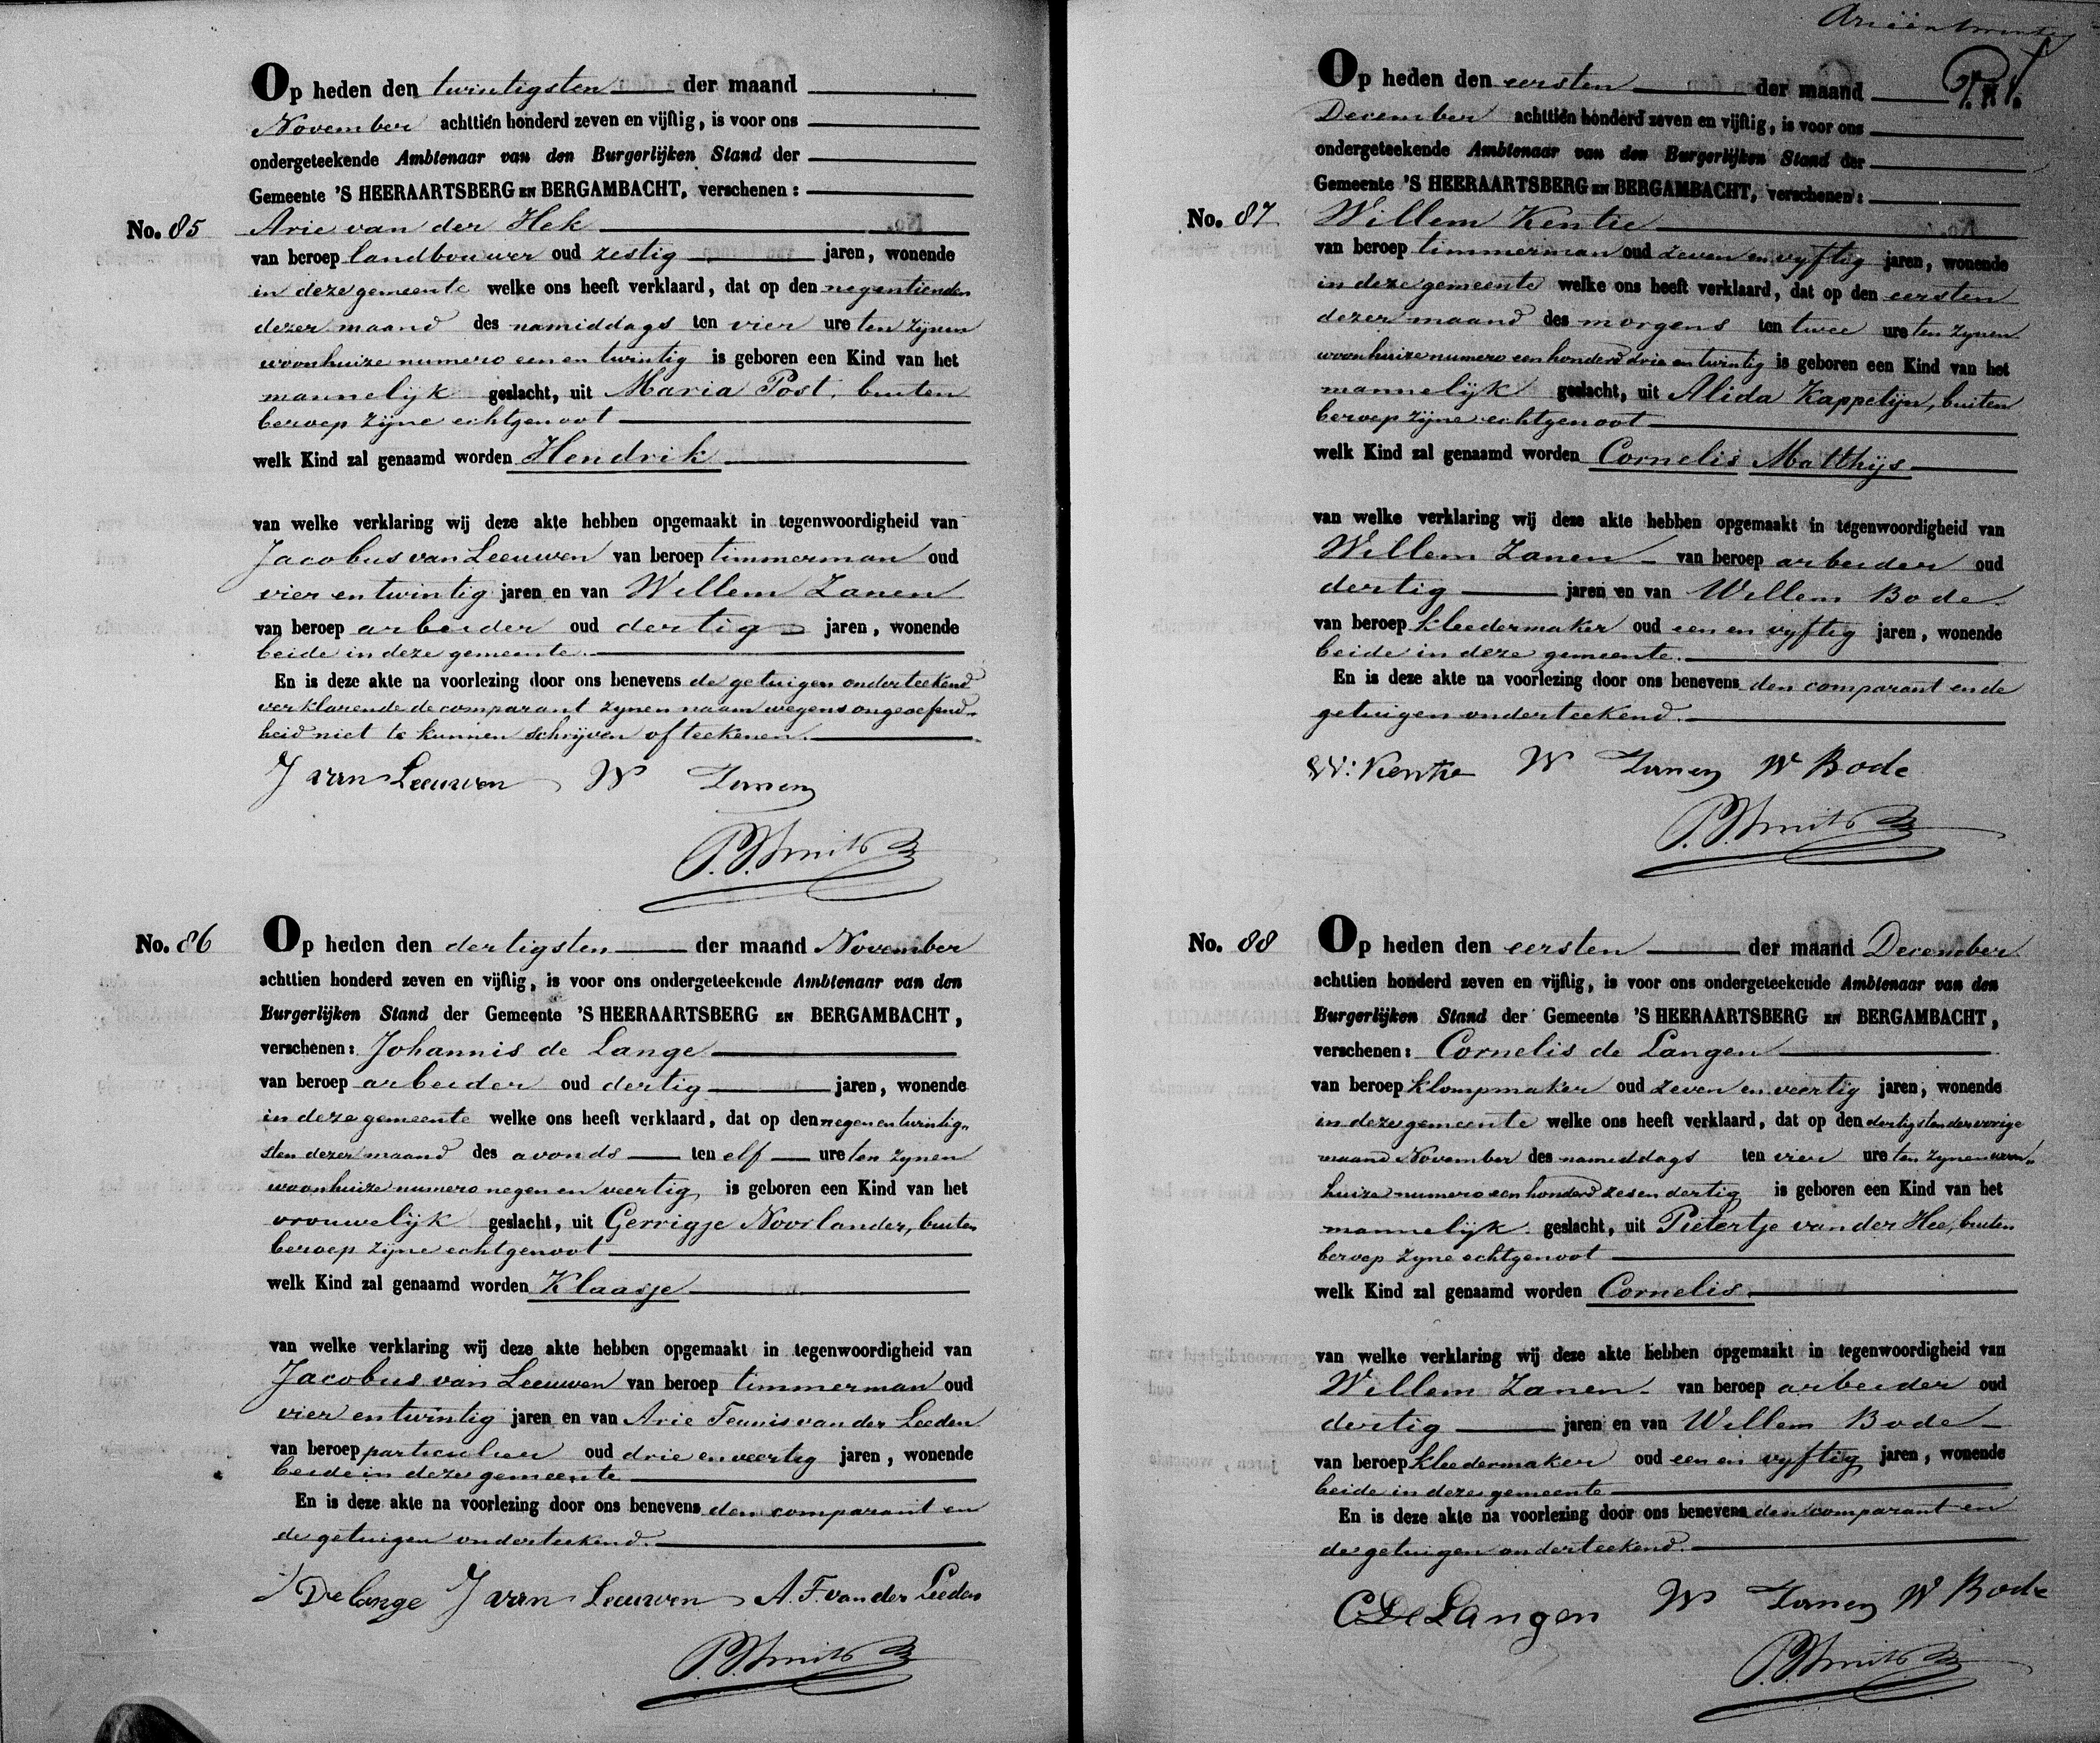 Op heden den twintigsten der maand
November achttien honderd zeven en vijftig, is voor ons
ondergeteekende Ambtenaar van den Burgerlijken Stand der
Gemeente 'S HEERAARTSBERG EN BERGAMBACHT, verschenen:
No. 85 Arie van der Hek
van beroep landbouwer oud zestig jaren, wonende
in deze gemeente welke ons heeft verklaard, dat op den negentienden
dezer maand des namiddags ten vier ure ten zijnen
woonhuize numero een en twintig is geboren een Kind van het
mannelijk geslacht, uit Maria Post, buiten
beroep zijne echtgenoot
welk Kind zal genaamd worden Hendrik
van welke verklaring wij deze akte hebben opgemaakt in tegenwoordigheid van
Jacobus van Leeuwen van beroep timmerman oud
vier en twintig jaren en van Willem Zanen
van beroep arbeider oud dertig jaren, wonende
beide in deze gemeente.
En is deze akte na voorlezing door ons benevens de getuigen onderteekend
verklarende de comparant zijnen naam wegens ongeoefend-
heid niet te kunnen schrijven of teekenen.
J van Leeuwen W Zanen
P. Smits
No. 86 Op heden den dertigsten der maand November
achttien honderd zeven en vijftig, is voor ons ondergeteekende Ambtenaar van den
Burgerlijken Stand der Gemeente 'S HEERAARTSBERG EN BERGAMBACHT,
verschenen: Johannis de Lange
van beroep arbeider oud dertig jaren, wonende
in deze gemeente welke ons heeft verklaard, dat op den negenentwintig-
sten dezer maand des avonds ten elf ure ten zijnen
woonhuize numero negen en veertig is geboren een Kind van het
vrouwelijk geslacht, uit Gerrigje Noorlander, buiten
beroep zijne echtgenoot
welk Kind zal genaamd worden Klaasje
van welke verklaring wij deze akte hebben opgemaakt in tegenwoordigheid van
Jacobus van Leeuwen van beroep timmerman oud
vier en twintig jaren en van Arie Teunis van der Leeden
van beroep particulier oud drie en veertig jaren, wonende
beide in deze gemeente
En is deze akte na voorlezing door ons benevens den comparant en
de getuigen onderteekend.
J De Lange J van Leeuwen A. F. van der Leeden
P. Smits
Op heden den eersten der maand
December achttien honderd zeven en vijftig, is voor ons
ondergeteekende Ambtenaar van den Burgerlijken Stand der
Gemeente 'S HEERAARTSBERG EN BERGAMBACHT, verschenen:
No. 87 Willem Kentie
van beroep timmerman oud zeven en vyftig jaren, wonende
in deze gemeente welke ons heeft verklaard, dat op den eersten
dezer maand des morgens ten twee ure ten zynen
woonhuize numero een honderd drie en twintig is geboren een Kind van het
mannelijk geslacht, uit Alida Kappetijn, buiten
beroep zijne echtgenoot
welk Kind zal genaamd worden Cornelis Matthijs
van welke verklaring wij deze akte hebben opgemaakt in tegenwoordigheid van
Willem Zanen van beroep arbeider oud
dertig jaren en van Willem Bode
van beroep kleedermaker oud een en vyftig jaren, wonende
beide in deze gemeente.
En is deze akte na voorlezing door ons benevens den comparant en de
getuigen onderteekend.
W: Kentie W Zanen W Bode
P. Smits
No. 88 Op heden den eersten der maand December
achttien honderd zeven en vijftig, is voor ons ondergeteekende Ambtenaar van den
Burgerlijken Stand der Gemeente 'S HEERAARTSBERG EN BERGAMBACHT,
verschenen: Cornelis de Langen
van beroep klompmaker oud zeven en veertig jaren, wonende
in deze gemeente welke ons heeft verklaard, dat op den dertigsten der vorige
maand November des namiddags ten vier ure ten zynen woon-
huize numero een honderd zes en dertig is geboren een Kind van het
mannelijk geslacht, uit Pietertje van der Hee, buiten
beroep zyne echtgenoot
welk Kind zal genaamd worden Cornelis
van welke verklaring wij deze akte hebben opgemaakt in tegenwoordigheid van
Willem Zanen van beroep arbeider oud
dertig jaren en van Willem Bode
van beroep kleedermaker oud een en vyftig jaren, wonende
beide in deze gemeente
En is deze akte na voorlezing door ons benevens den comparant en
de getuigen onderteekend.
C De Langen W Zanen W Bode
P. Smits